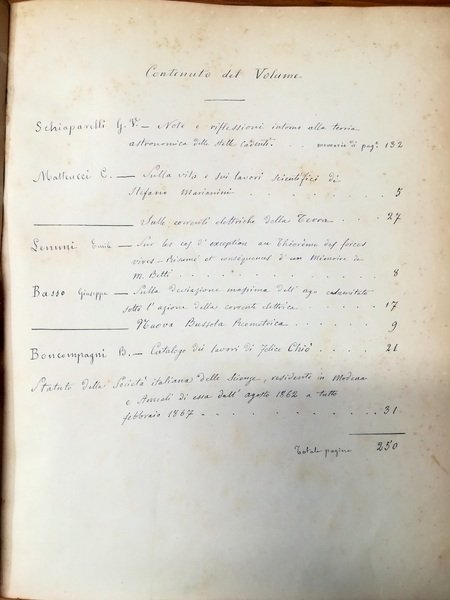 Contenuto del Volume
Schiaparelli G. V. — Note e riflessioni intorno alla teoria
astronomica delle stelle cadenti. . . memoria di pag. 132
Matteucci C. — Sulla vita e sui lavori scientifici di
Stefano Marianini . . . . 5
Sulle correnti elettriche della Terra . . . . 27
Emile — Sur les cas d'exception au Théorème des forces
vives — Résumé et conséquences d'un Mémoire de
M. Betti . . . . . . . . 8
Basso Giuseppe — Sulla deviazione massima dell'ago calamitato
sotto l'azione della corrente elettrica . . . . 17
Nuova Bussola Reometrica . . . . . 9
Boncompagni B. — Catalogo dei lavori di Felice Chiò . . . . 21
Statuto della Società italiana delle Scienze, residente in Modena
e Annali di essa dall'agosto 1862 a tutto
febbraio 1867 . . . . . . . . . 31
Totale pagine 250